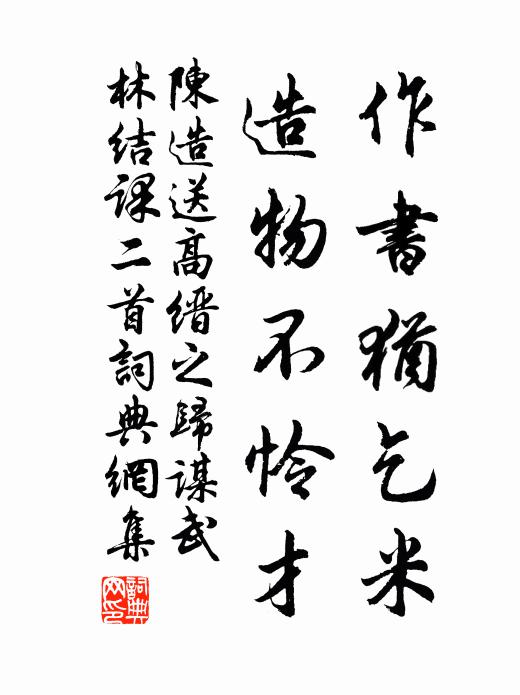 作書猶乞米
造物不怜才
陳造送高缙之歸謀武
林結課二首詞典網集
詞典
网印